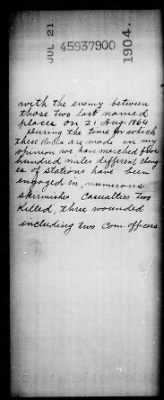 JUL. 21
45937900
1904.
with the enemy between
those two last named
places on 21 Aug 1864
During the time for which
these Rolls are made in my
opinion we have marched five
hundred miles different chang
es of stations have been
engaged in, numerous
skirmishes Casualties two
Killed, three wounded
including two Com. officers